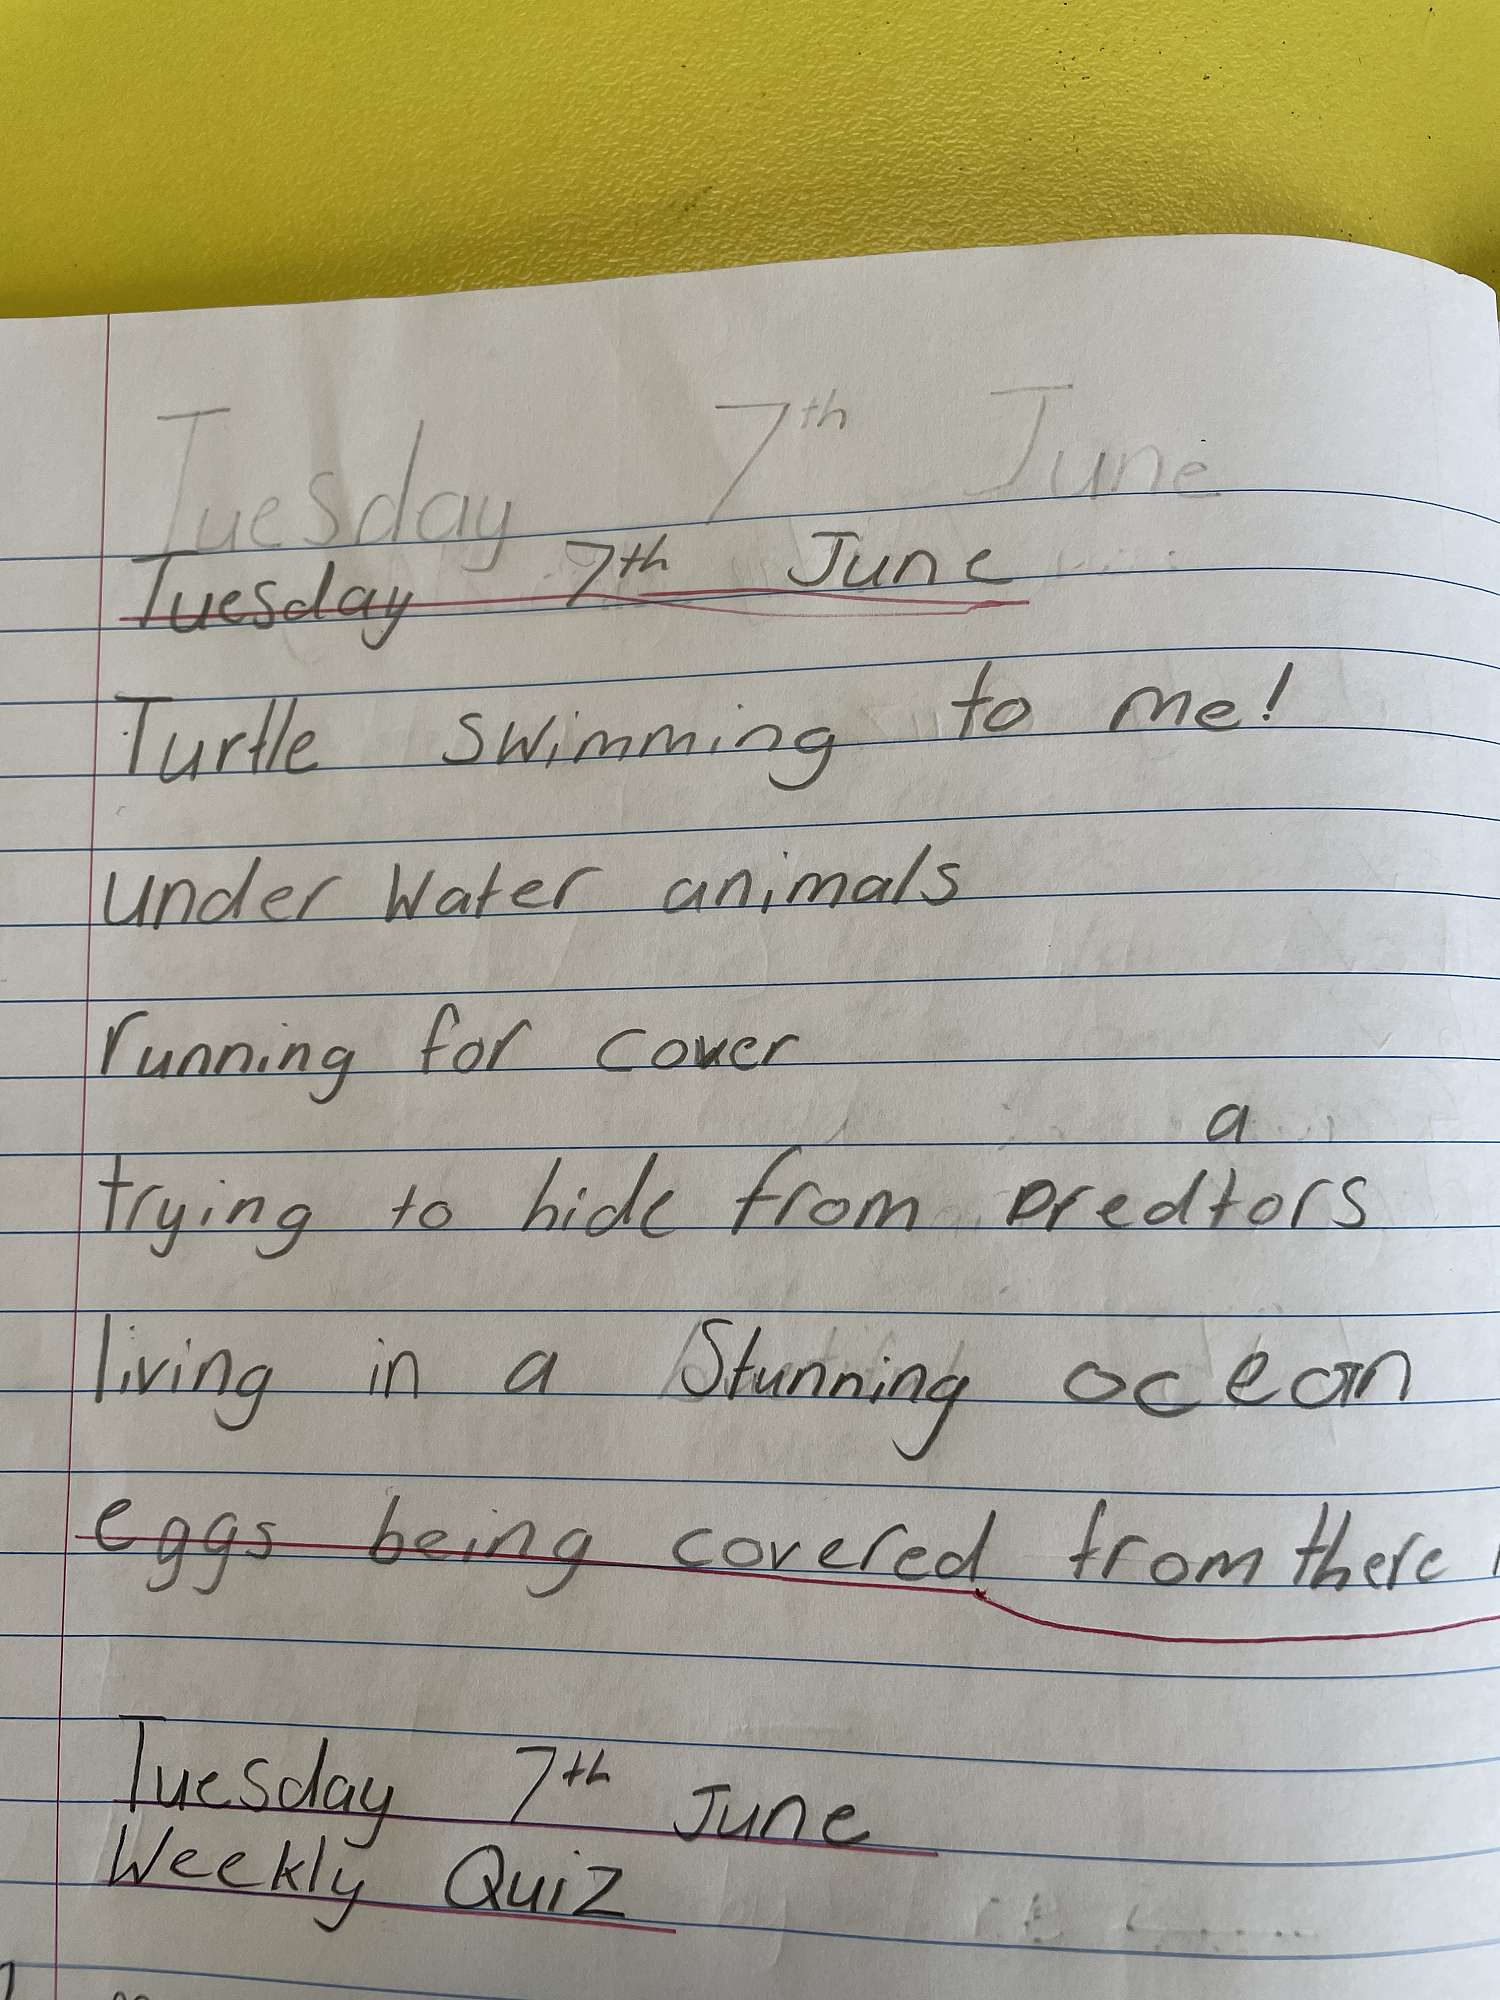 Tuesday 7th June
Tuesday 7th June
Turtle swimming to me!
under Water animals
running for cover
a
trying to hide from predtors
living in a Stunning ocean
eggs being covered from there
Tuesday 7th June
Weekly Quiz